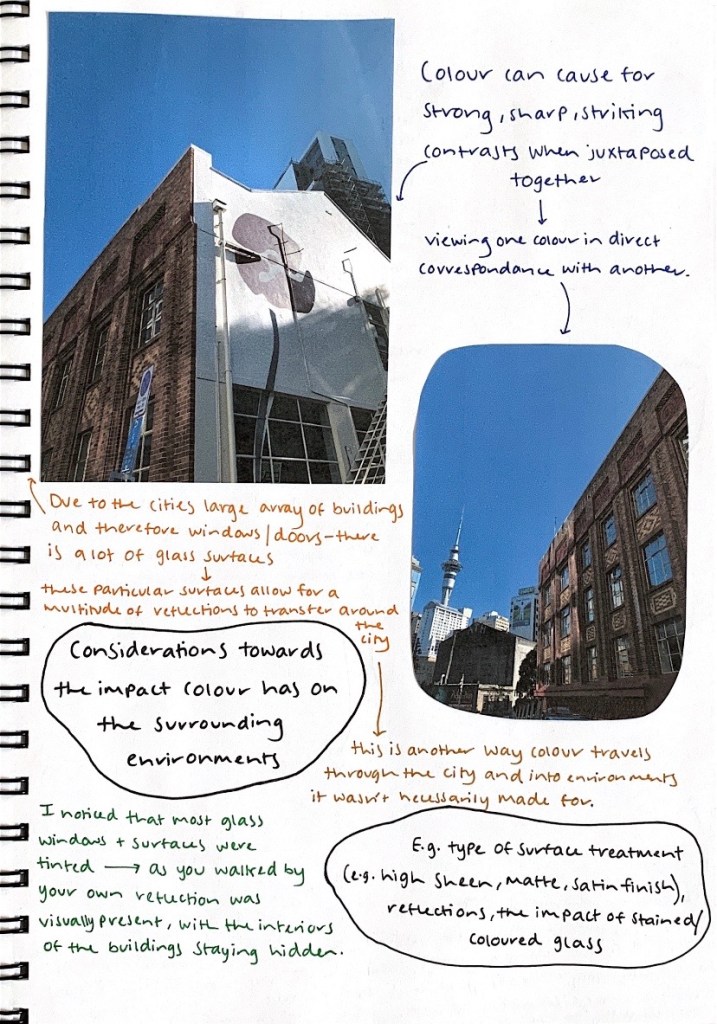 Colour can cause for
strong, sharp, striking
contrasts when juxtaposed
together
viewing one colour in direct
correspondance with another.
Due to the cities large array of buildings
and therefore windows/doors-there
is a lot of glass surfaces
these particular surfaces allow for a
multitude of reflections to transfer around
the
city
Considerations towards
the impact colour has on
the surrounding
environments
this is another way colour travels
through the city and into environments
it wasn't necessarily made for.
I noticed that most glass
windows + surfaces were
tinted → as you walked by
your own reflection was
visually present, with the interiors
of the buildings staying hidden.
E.g. type of surface treatment
(e.g. high sheen, matte, satin finish),
reflections, the impact of stained/
coloured glass